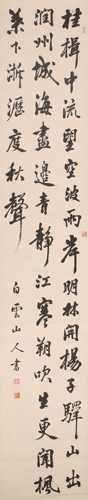 桂楫中流望空波兩岸明林開楊子驛山出
潤州城海盡邊青靜江寒朔吹生更聞楓
葉下淅瀝度秋聲
白雲山人書